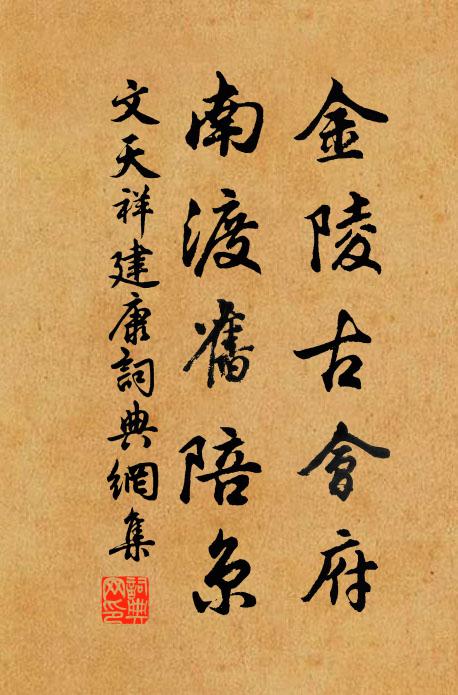 金陵古會府
南渡舊陪京
文天祥建康詞典網集
詞典網印